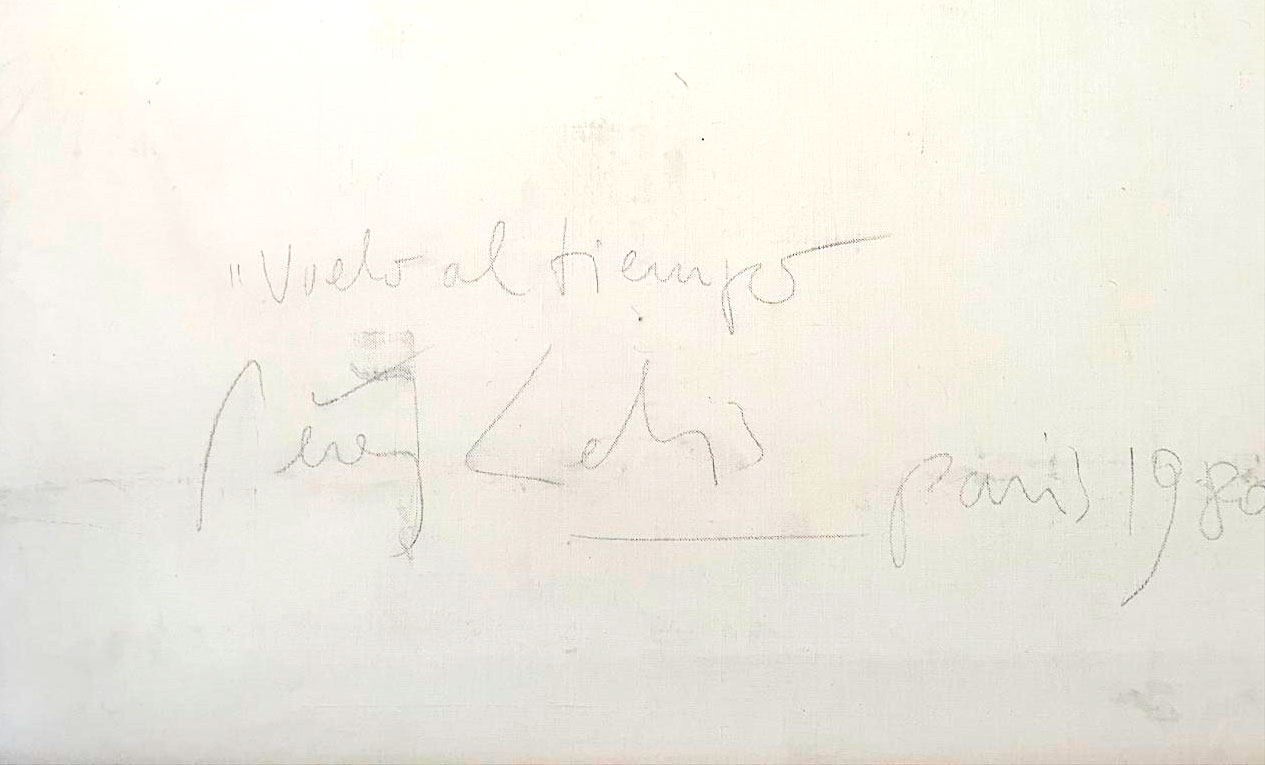 "Vuelo al tiempo
Pérez Celis
paris 1980